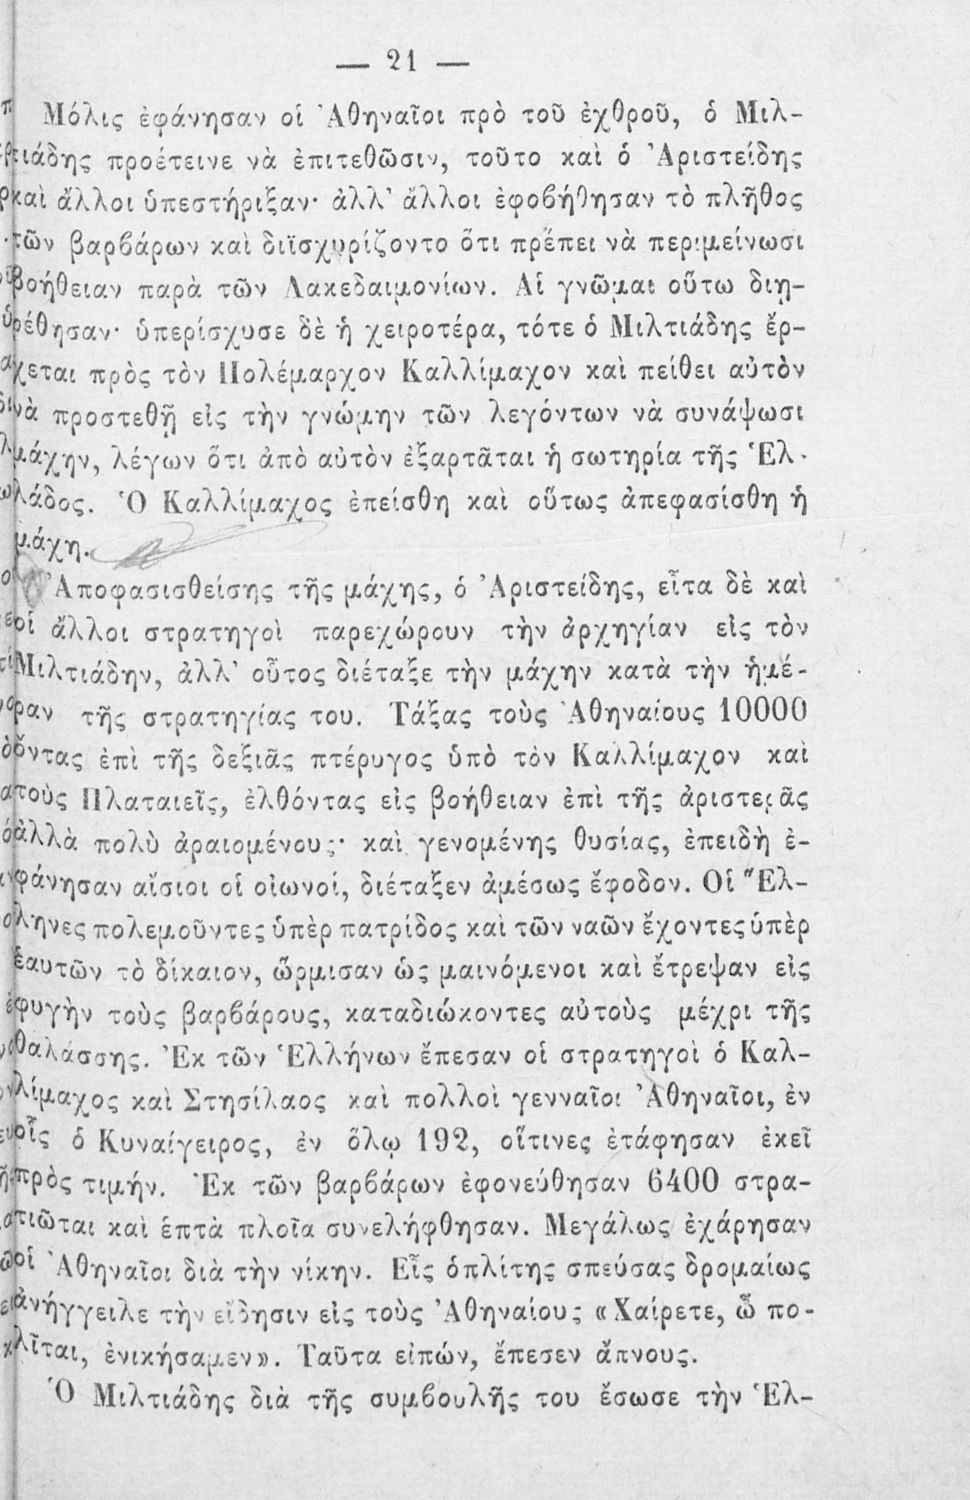 — 21 —
Μόλις ἐφάνησαν οἱ Ἀθηναῖοι πρὸ τοῦ ἐχθροῦ, ὁ Μιλ-
τιάδης προέτεινε νὰ ἐπιτεθῶσιν, τοῦτο καὶ ὁ Ἀριστείδης
καὶ ἄλλοι ὑπεστήριξαν· ἀλλ' ἄλλοι ἐφοβήθησαν τὸ πλῆθος
τῶν βαρβάρων καὶ διϊσχυρίζοντο ὅτι πρέπει νὰ περιμείνωσι
βοήθειαν παρὰ τῶν Λακεδαιμονίων. Αἱ γνῶμαι οὕτω διῃ-
ρέθησαν· ὑπερίσχυσε δὲ ἡ χειροτέρα, τότε ὁ Μιλτιάδης ἔρ-
χεται πρὸς τὸν Πολέμαρχον Καλλίμαχον καὶ πείθει αὐτὸν
νὰ προστεθῇ εἰς τὴν γνώμην τῶν λεγόντων νὰ συνάψωσι
μάχην, λέγων ὅτι ἀπὸ αὐτὸν ἐξαρτᾶται ἡ σωτηρία τῆς Ἑλ-
λάδος. Ὁ Καλλίμαχος ἐπείσθη καὶ οὕτως ἀπεφασίσθη ἡ
μάχη.
Ἀποφασισθείσης τῆς μάχης, ὁ Ἀριστείδης, εἶτα δὲ καὶ
οἱ ἄλλοι στρατηγοὶ παρεχώρουν τὴν ἀρχηγίαν εἰς τὸν
Μιλτιάδην, ἀλλ' οὗτος διέταξε τὴν μάχην κατὰ τὴν ἡμέ-
ραν τῆς στρατηγίας του. Τάξας τοὺς Ἀθηναίους 10000
ὄντας ἐπὶ τῆς δεξιᾶς πτέρυγος ὑπὸ τὸν Καλλίμαχον καὶ
τοὺς Πλαταιεῖς, ἐλθόντας εἰς βοήθειαν ἐπὶ τῆς ἀριστερᾶς
ἀλλὰ πολὺ ἀραιομένους· καὶ γενομένης θυσίας, ἐπειδὴ ἐ-
φάνησαν αἴσιοι οἱ οἰωνοί, διέταξεν ἀμέσως ἔφοδον. Οἱ Ἕλ-
ληνες πολεμοῦντες ὑπὲρ πατρίδος καὶ τῶν ναῶν ἔχοντες ὑπὲρ
ἑαυτῶν τὸ δίκαιον, ὥρμισαν ὡς μαινόμενοι καὶ ἔτρεψαν εἰς
φυγὴν τοὺς βαρβάρους, καταδιώκοντες αὐτοὺς μέχρι τῆς
θαλάσσης. Ἐκ τῶν Ἑλλήνων ἔπεσαν οἱ στρατηγοὶ ὁ Καλ-
λίμαχος καὶ Στησίλαος καὶ πολλοὶ γενναῖοι Ἀθηναῖοι, ἐν
οἷς ὁ Κυναίγειρος, ἐν ὅλῳ 192, οἵτινες ἐτάφησαν ἐκεῖ
πρὸς τιμήν. Ἐκ τῶν βαρβάρων ἐφονεύθησαν 6400 στρα-
τιῶται καὶ ἑπτὰ πλοῖα συνελήφθησαν. Μεγάλως ἐχάρησαν
οἱ Ἀθηναῖοι διὰ τὴν νίκην. Εἷς ὁπλίτης σπεύσας δρομαίως
ἀνήγγειλε τὴν εἴδησιν εἰς τοὺς Ἀθηναίους «Χαίρετε, ὦ πο-
λῖται, ἐνικήσαμεν». Ταῦτα εἰπών, ἔπεσεν ἄπνους.
Ὁ Μιλτιάδης διὰ τῆς συμβουλῆς του ἔσωσε τὴν Ἑλ-